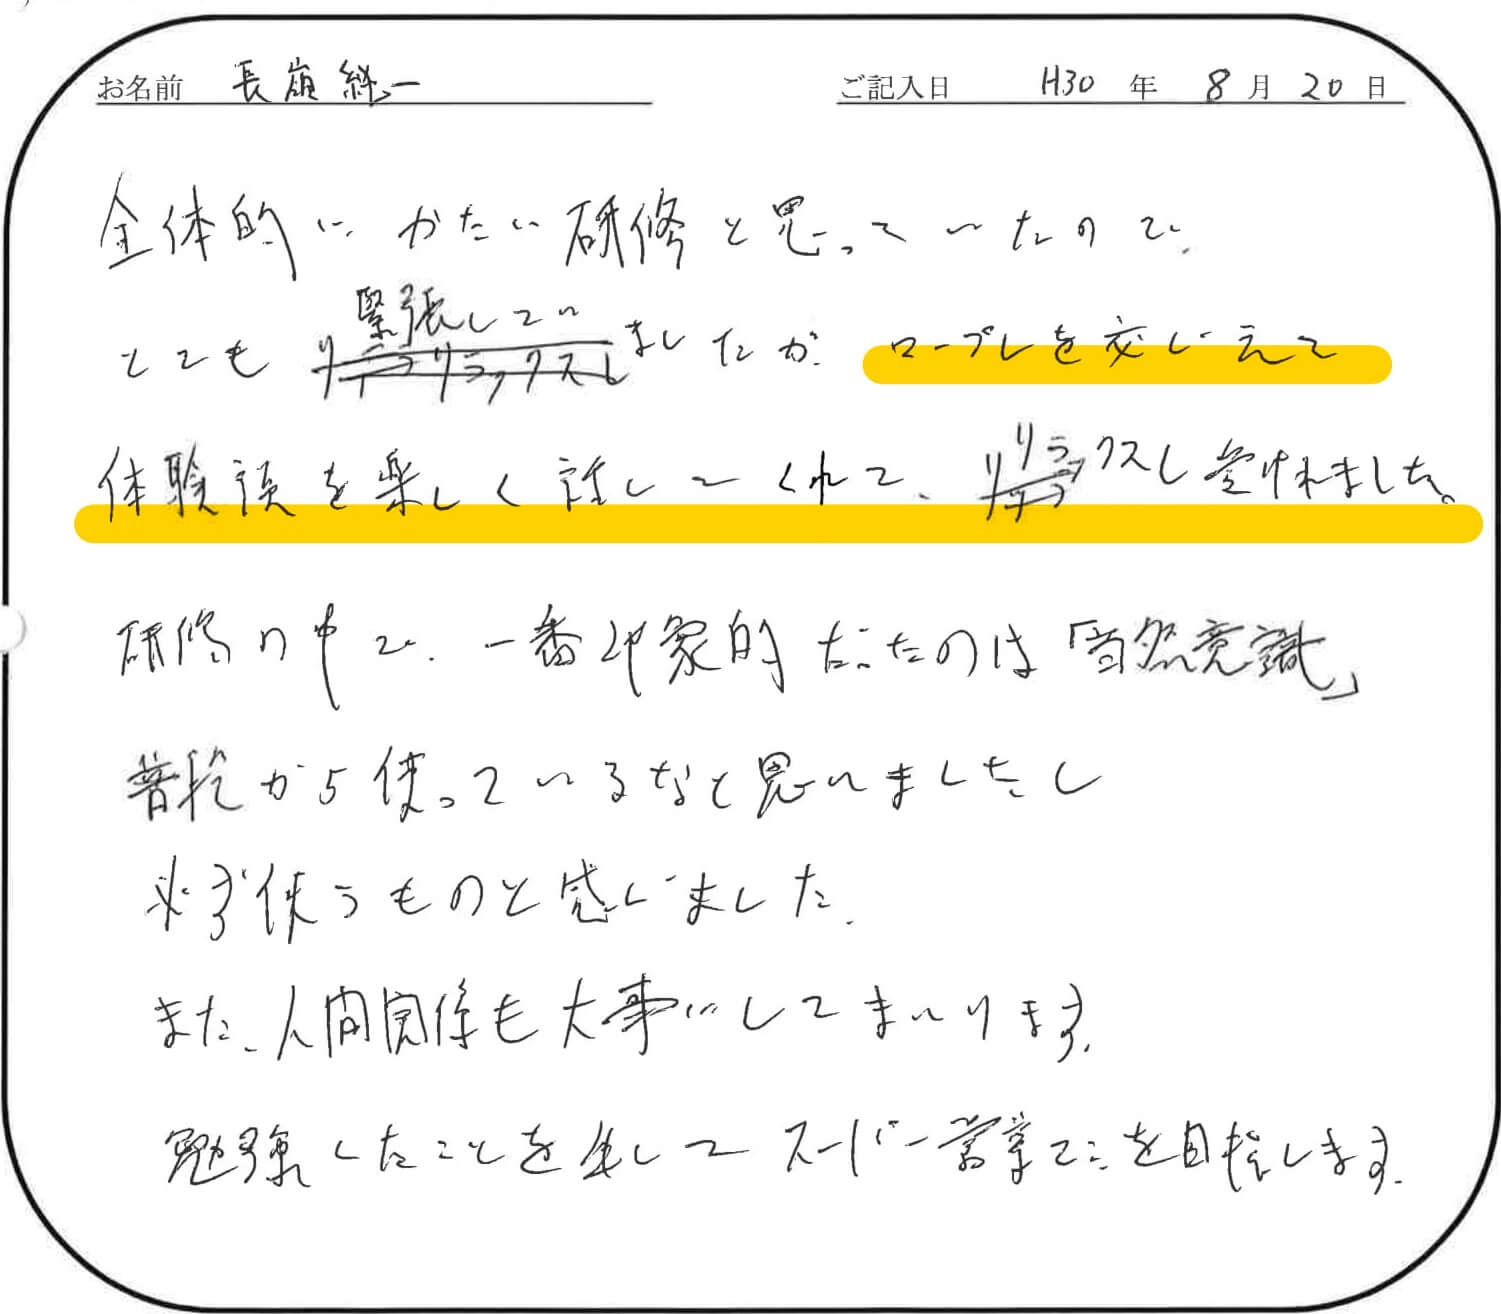 お名前 長嶺 一 ご記入日 H30 年 8 月 20 日
全体的に かたい研修と思っていたので、
緊張してい
とても ましたが、ロープレを交じえて
リラ
体験談を楽しく話してくれて、 ックスし受けれました。
研修の中で、一番印象的だったのは「当然意識」
普段から使っているなと思いましたし
必ず使うものと感じました。
また、人間関係も大事にしてまいります。
勉強したことを生してスーパー営業マンを目指します。